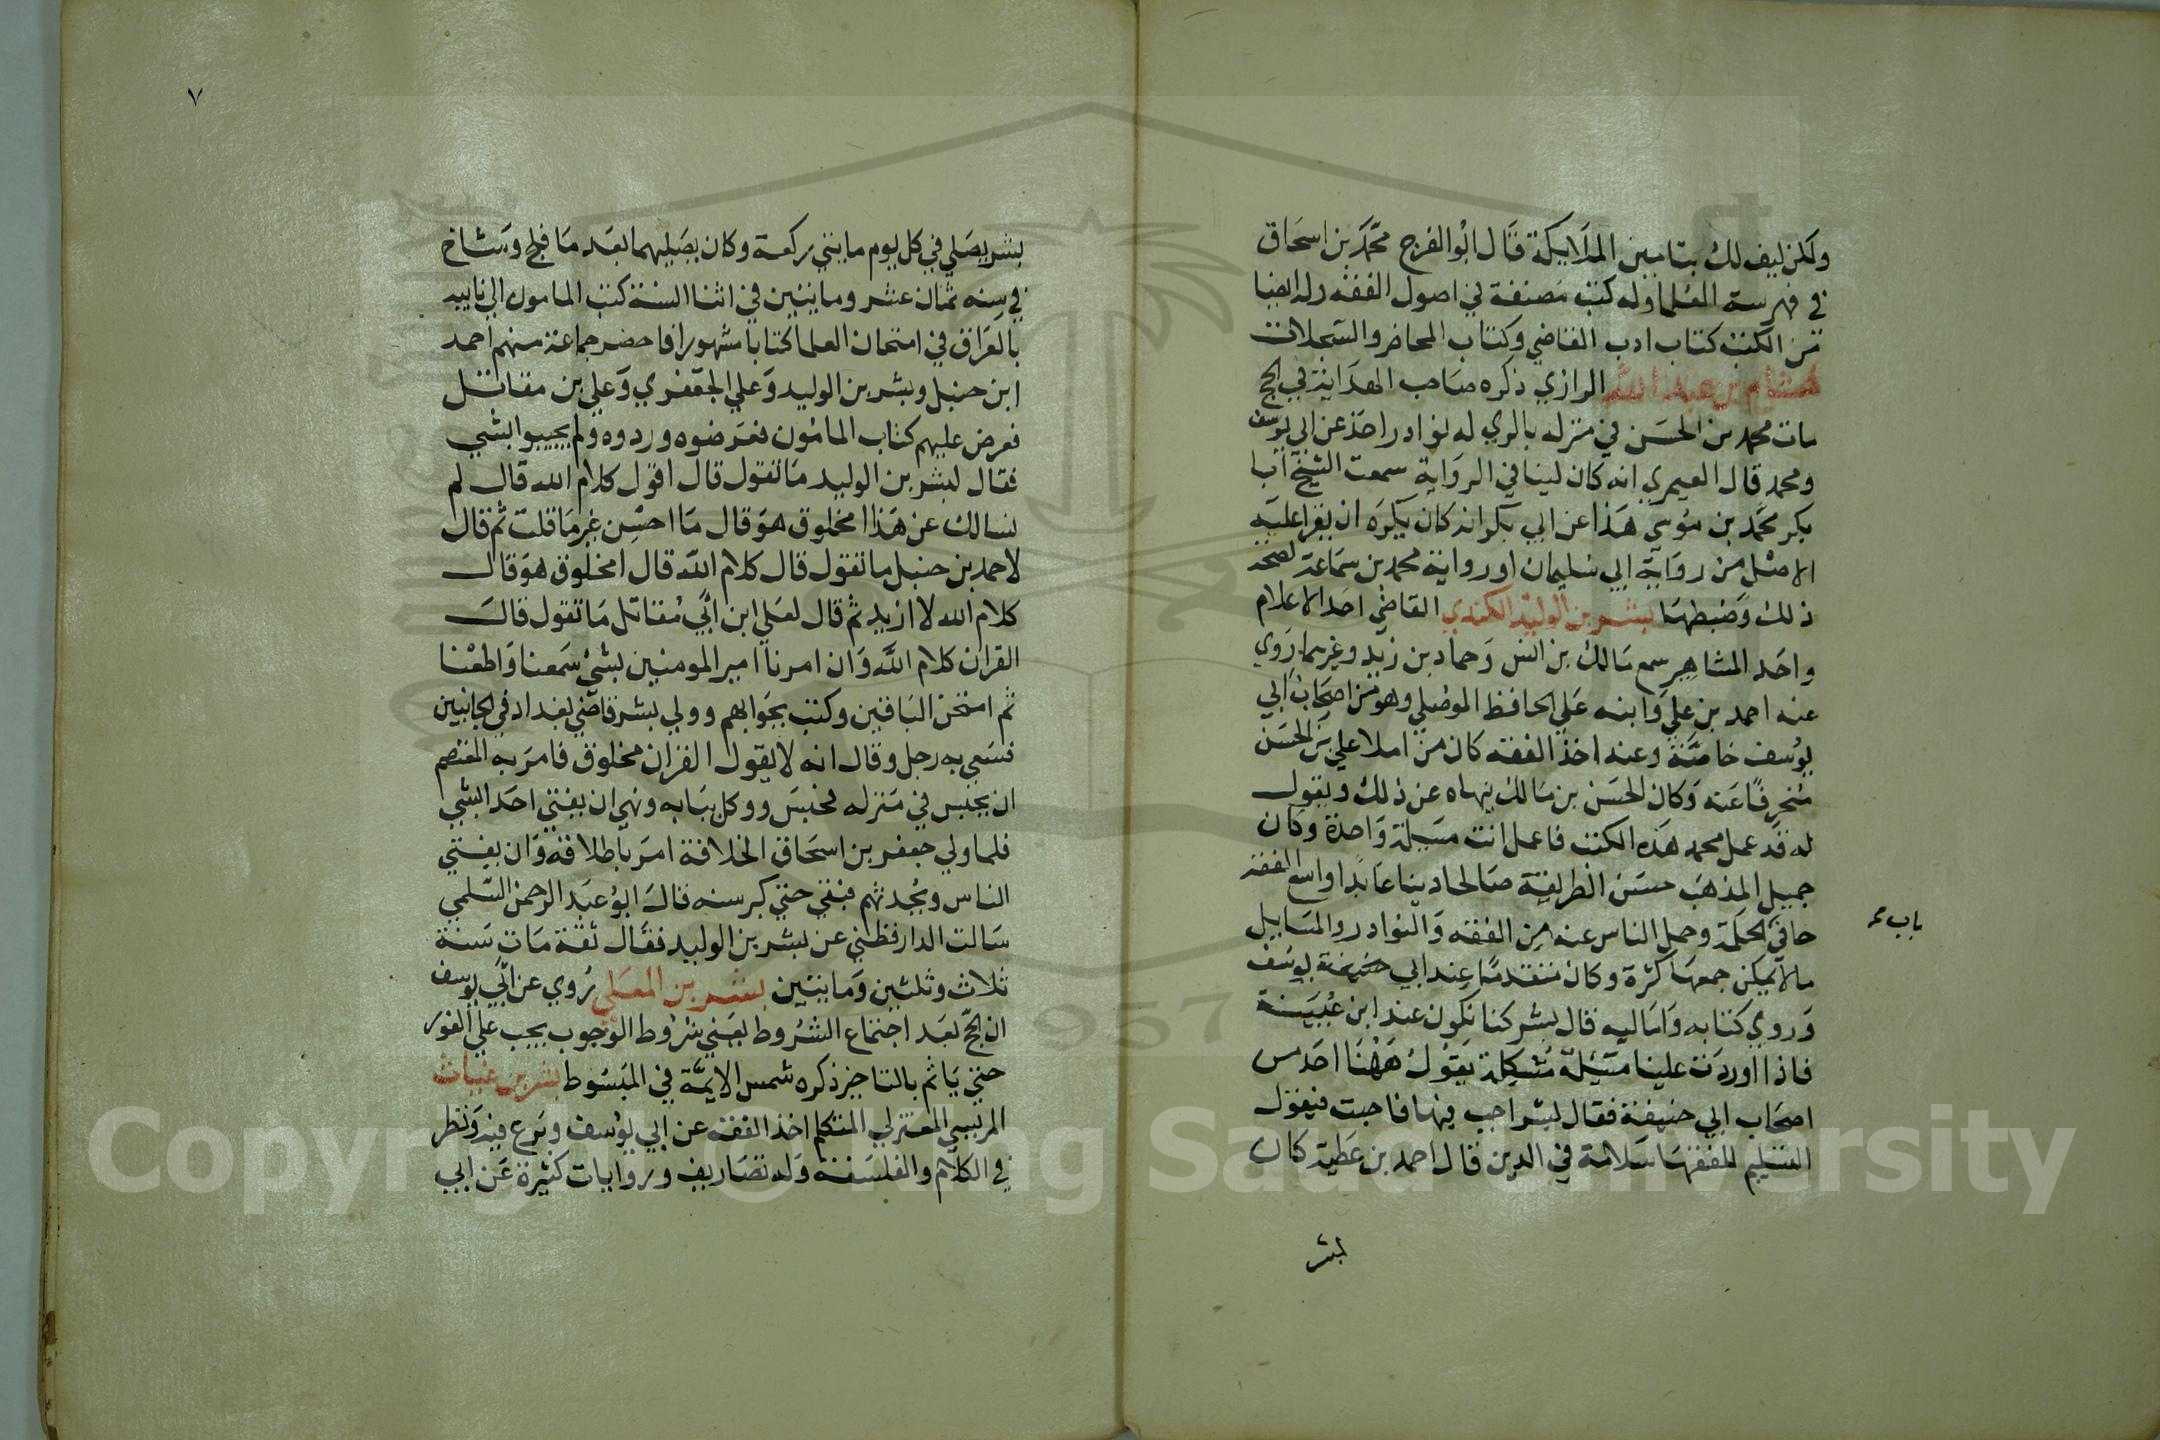 ولكن كيف لك بتامين الملايكة قال ابو الفرج محمد بن اسحاق
في فهرسة العلما وله كتب مصنفة في اصول الفقه وله ايضا
من الكتب كتاب ادب القاضي وكتاب المحاضر والسجلات
هشام بن عبد الله الرازي ذكره صاحب الهداية في الحج
مات محمد بن الحسن في منزله بالري له نوادر اخذ عن ابي يوسف
ومحمد قال الصيمري انه كان لينا في الرواية سمعت الشيخ ابا
بكر محمد بن موسى هذا عن ابي بكر انه كان يكره ان يقرا عليه
الاصل من رواية ابي سليمان او رواية محمد بن سماعة لصحة
ذلك وضبطها بشر بن الوليد الكندي القاضي احد الاعلام
واحد المشاهير سمع مالك بن انس وحماد بن زيد وغيرهما روي
عنه احمد بن علي وابنه علي الحافظ الموصلي وهو من اصحاب ابي
يوسف خاصة وعنه اخذ الفقه كان من املا علي بن الحسن
منحرفا عنه وكان الحسن بن مالك ينهاه عن ذلك ويقول
له قد عمل محمد هذه الكتب فاعمل انت مسيلة واحدة وكان
جميل المذهب حسن الطريقة صالحا دينا عابدا واسع الفقه
باب م
حافي الحكمة وحمل الناس عنه من الفقه والنوادر والمسايل
مالا يمكن جمعها كثرة وكان متقدما عند ابي يوسف
وروي كتابه واماليه قال بشر كنا نكون عند ابن عيينة
فاذا اوردت علينا مسيلة مشكلة يقول ههنا احد من
اصحاب ابي حنيفة فقال بشر اجب فيها فاجبت فيقول
التسليم للفقها سلامة في الدين قال احمد بن عطية كان
بشر
٧
بشر يصلي في كل يوم مايتي ركعة وكان يصليهما بعد ما فلج وشاخ
في سنه ثمان عشر ومايتين في اثنا السنة كتب المامون الى نايبه
بالعراق في امتحان العلما كتابا مشهورا فاحضر جماعة منهم احمد
ابن حنبل وبشر بن الوليد وعلي الجعفري وعلي بن مقاتل
فعرض عليهم كتاب المامون فعرضوه وردوه ولم يجيبوا بشي
فقال لبشر بن الوليد ما تقول قال اقول كلام الله قال لم
نسالك عن هذا امخلوق هو قال ما احسن غير ما قلت ثم قال
لاحمد بن حنبل ما تقول قال كلام الله قال امخلوق هو قال
كلام الله لا ازيد ثم قال لعلي ابن ابي مقاتل ما تقول قال
القران كلام الله وان امرنا امير المومنين بشي سمعنا واطعنا
ثم امتحن الباقين وكتب بجوابهم وولي بشر قاضي بغداد في الجانبين
فسعي به رجل وقال انه لا يقول القران مخلوق فامر به المعتصم
ان يحبس في منزله فحبس ووكل ببابه ونهى ان يفتي احدا بشي
فلما ولي جعفر بن اسحاق الخلافة امر باطلاقه وان يفتي
الناس ويحدثهم فبقي حتى كبر سنه قال ابو عبد الرحمن السلمي
سالت الدارقطني عن بشر بن الوليد فقال ثقة مات سنة
ثلاث وثلثين ومايتين بشر بن المعلى روي عن ابي يوسف
ان الحج بعد اجتماع الشروط يعني شروط الوجوب يجب علي الفور
حتي ياثم بالتاخير ذكره شمس الايمة في المبسوط بشر بن غياث
المريسي المعتزلي المتكلم اخذ الفقه عن ابي يوسف وبرع فيه ونظر
في الكلام والفلسفة وله تصاريف وروايات كثيرة عن ابي
Copyright © King Saud University
1957